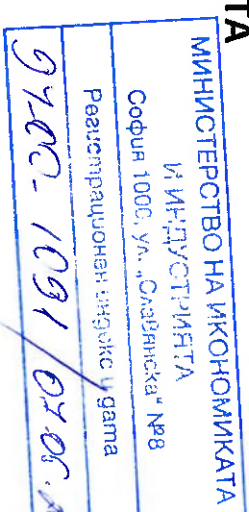 ТА
МИНИСТЕРСТВО НА ИКОНОМИКАТА
И ИНДУСТРИЯТА
София 1000, ул. „Славянска" №8
Регистрационен индекс и дата